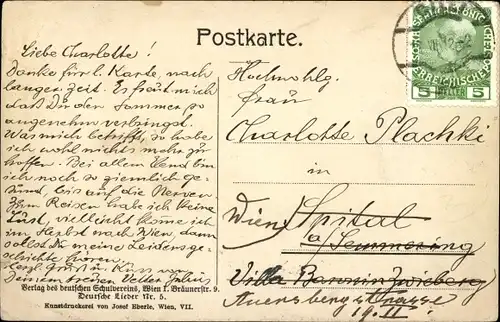 Postkarte.
Liebe Charlotte!
Danke für l. Karte, nach
langer Zeit. Es freut mich
daß Du den Sommer so
angenehm verbringst.
Was mich betrifft, so habe
ich wohl nichts mehr zu
hoffen. Bei allem Elend bin
ich noch so ziemlich ge-
sund, bis auf die Nerven.
Zum Reisen habe ich keine
Lust, vielleicht komme ich
im Herbst nach Wien, dann
sollst Du meine Leidensge-
schichte hören.
Herzl. Gruß u. Kuss von
Deinem treuen Vetter Julius
Verlag des deutschen Schulvereins, Wien I. Bräunerstr. 9.
Deutsche Lieder Nr. 5.
Kunstdruckerei von Josef Eberle, Wien, VII.
5 HELLER 5
Hochwohlg.
Frau
Charlotte Plachki
in
Wien Spital
a/ Semmering
Villa Baronin Zwieberg
Auersbergstrasse
19. II.